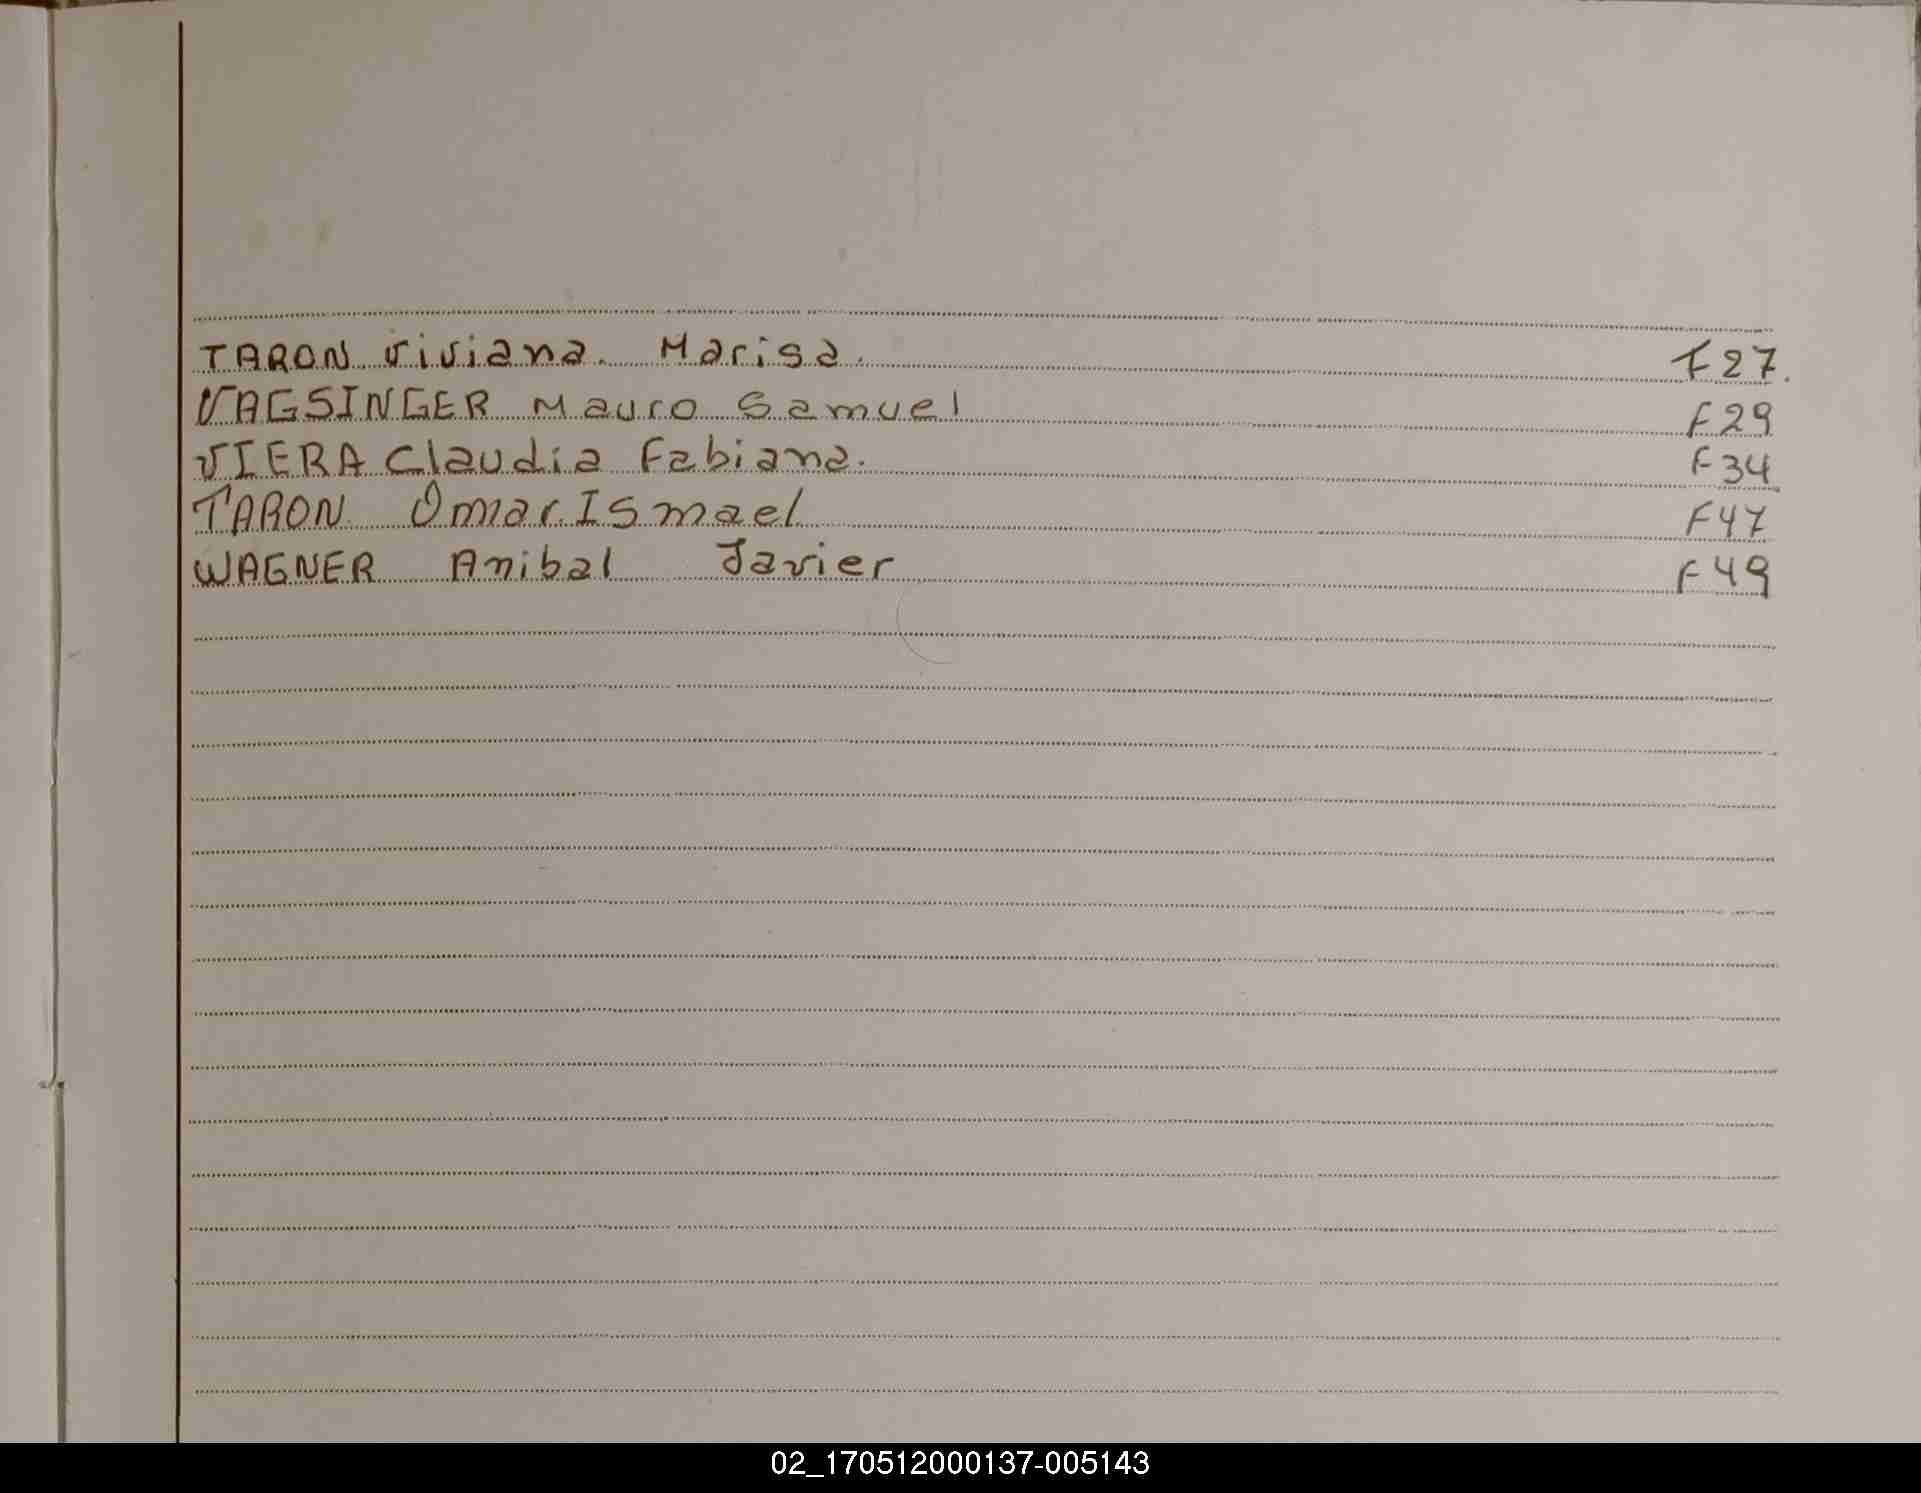 TARON Viviana. Marisa. F27.
VAGSINGER Mauro Samuel F29
VIERA Claudia Fabiana. F34
TARON Omar Ismael F47
WAGNER Anibal Javier F49
02_170512000137-005143